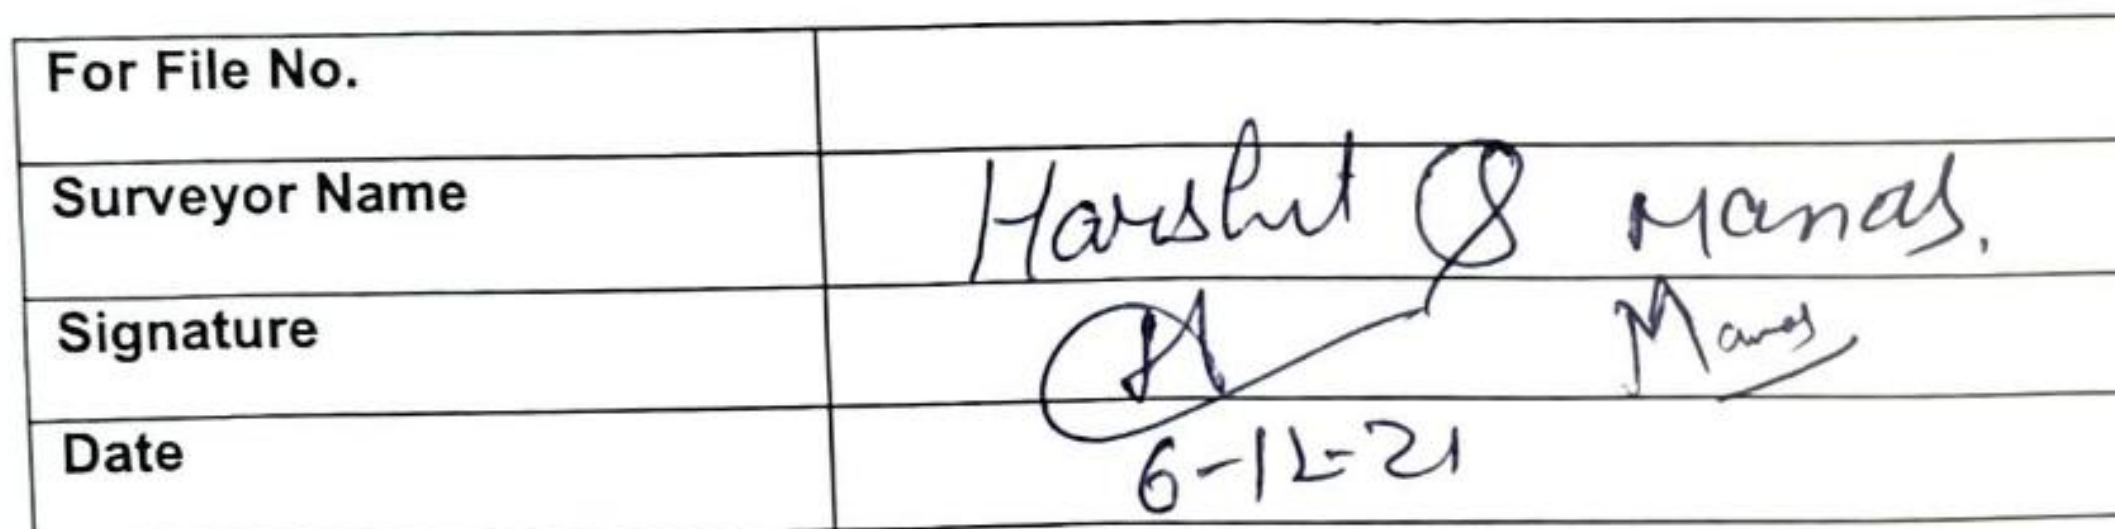 For File No.
Surveyor Name Harshit & Manas.
Signature Manas
Date 6-12-21